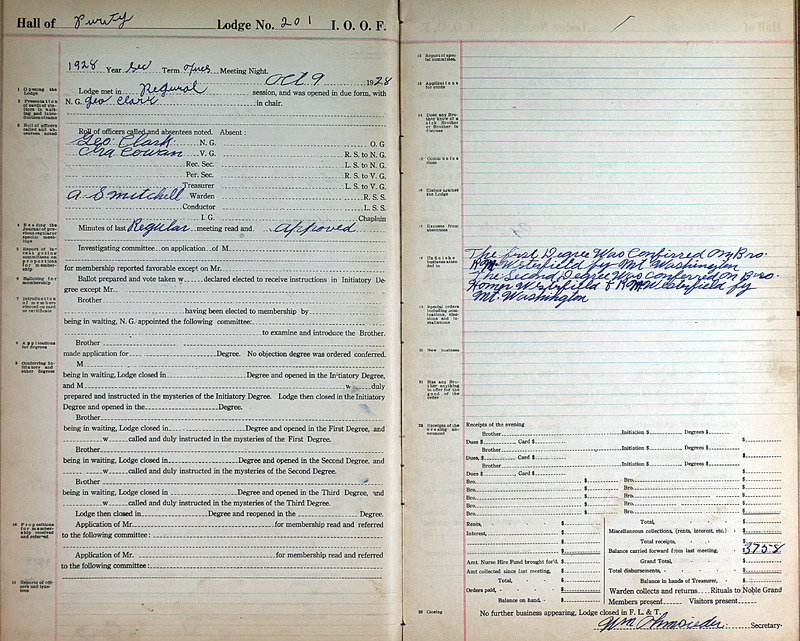 Hall of Purity Lodge No. 201 I. O. O. F.
1928 Year Sec Term Tues Meeting Night. Oct 9 1928
1 Opening the Lodge
Lodge met in Regural session, and was opened in due form, with
N. G. Geo Clark in chair.
Roll of officers called and absentees noted. Absent:
Geo. Clark N. G. O. G
Ora Cowan V. G. R. S. to N. G.
Rec. Sec. L. S. to N. G.
Per. Sec. R. S. to V. G.
Treasurer L. S. to V. G.
A S Mitchell Warden R. S. S.
Conductor L. S. S.
I. G. Chaplain
Minutes of last Regular meeting read and approved
Investigating committee on application of M
for membership reported favorable except on Mr.
6 Balloting for membership
Ballot prepared and vote taken w declared elected to receive instructions in Initiatory De-
gree except Mr.
Brother
having been elected to membership by
being in waiting, N. G. appointed the following committee:
to examine and introduce the Brother.
8 Applications for degrees
Brother
made application for Degree. No objection degree was ordered conferred.
9 Conferring Initiatory and other degrees
M
being in waiting, Lodge closed in Degree and opened in the Initiatory Degree,
and M w duly
prepared and instructed in the mysteries of the Initiatory Degree. Lodge then closed in the Initiatory
Degree and opened in the Degree.
Brother
being in waiting, Lodge closed in Degree and opened in the First Degree, and
w called and duly instructed in the mysteries of the First Degree.
Brother
being in waiting, Lodge closed in Degree and opened in the Second Degree, and
w called and duly instructed in the mysteries of the Second Degree.
Brother
being in waiting, Lodge closed in Degree and opened in the Third Degree, and
w called and duly instructed in the mysteries of the Third Degree.
Lodge then closed in Degree and reopened in the Degree.
10 Propositions for membership received and referred
Application of Mr. for membership read and referred
to the following committee:
Application of Mr. for membership read and referred
to the following committee:
11 Reports of officers and trustees
12 Reports of special committees.
13 Applications for cards
14 Does any Brother know of a sick Brother or Brother in distress
15 Communications
16 Claims against the Lodge
17 Excuses from absentees
The First Degree Was Confirred On Bro.
H M Westerfield by Mt. Washington
The Second Degree Was Conferred On Bros.
Homer Westerfield & H M Westerfield by
Mt. Washington
20 New business
21 Has any Brother anything to offer for the good of the order
22 Receipts of the evening announced
Receipts of the evening
Brother Initiation $ Degrees $
Dues $ , Card $ $
Brother Initiation $ Degrees $
Dues, $ , Card $ $
Brother Initiation $ Degrees $
Dues $ , Card $ $
Bro. $ Bro. $
Bro. $ Bro. $
Bro. $ Bro. $
Bro. $ Bro. $
Rents, $ Total, $
Interest, $ Miscellaneous collections, (rents, interest, etc.) $
$ Total receipts, $
Balance carried forward from last meeting, 3758
Amt. Nurse Hire Fund brought for'd. $ Grand Total, $
Amt collected since last meeting, $ Total disbursements, $
Total, $ Balance in hands of Treasurer, $
Orders paid, $ Warden collects and returns Rituals to Noble Grand
Balance on hand, $ Members present Visitors present
23 Closing
No further business appearing, Lodge closed in F. L. & T.
Wm Secretary.